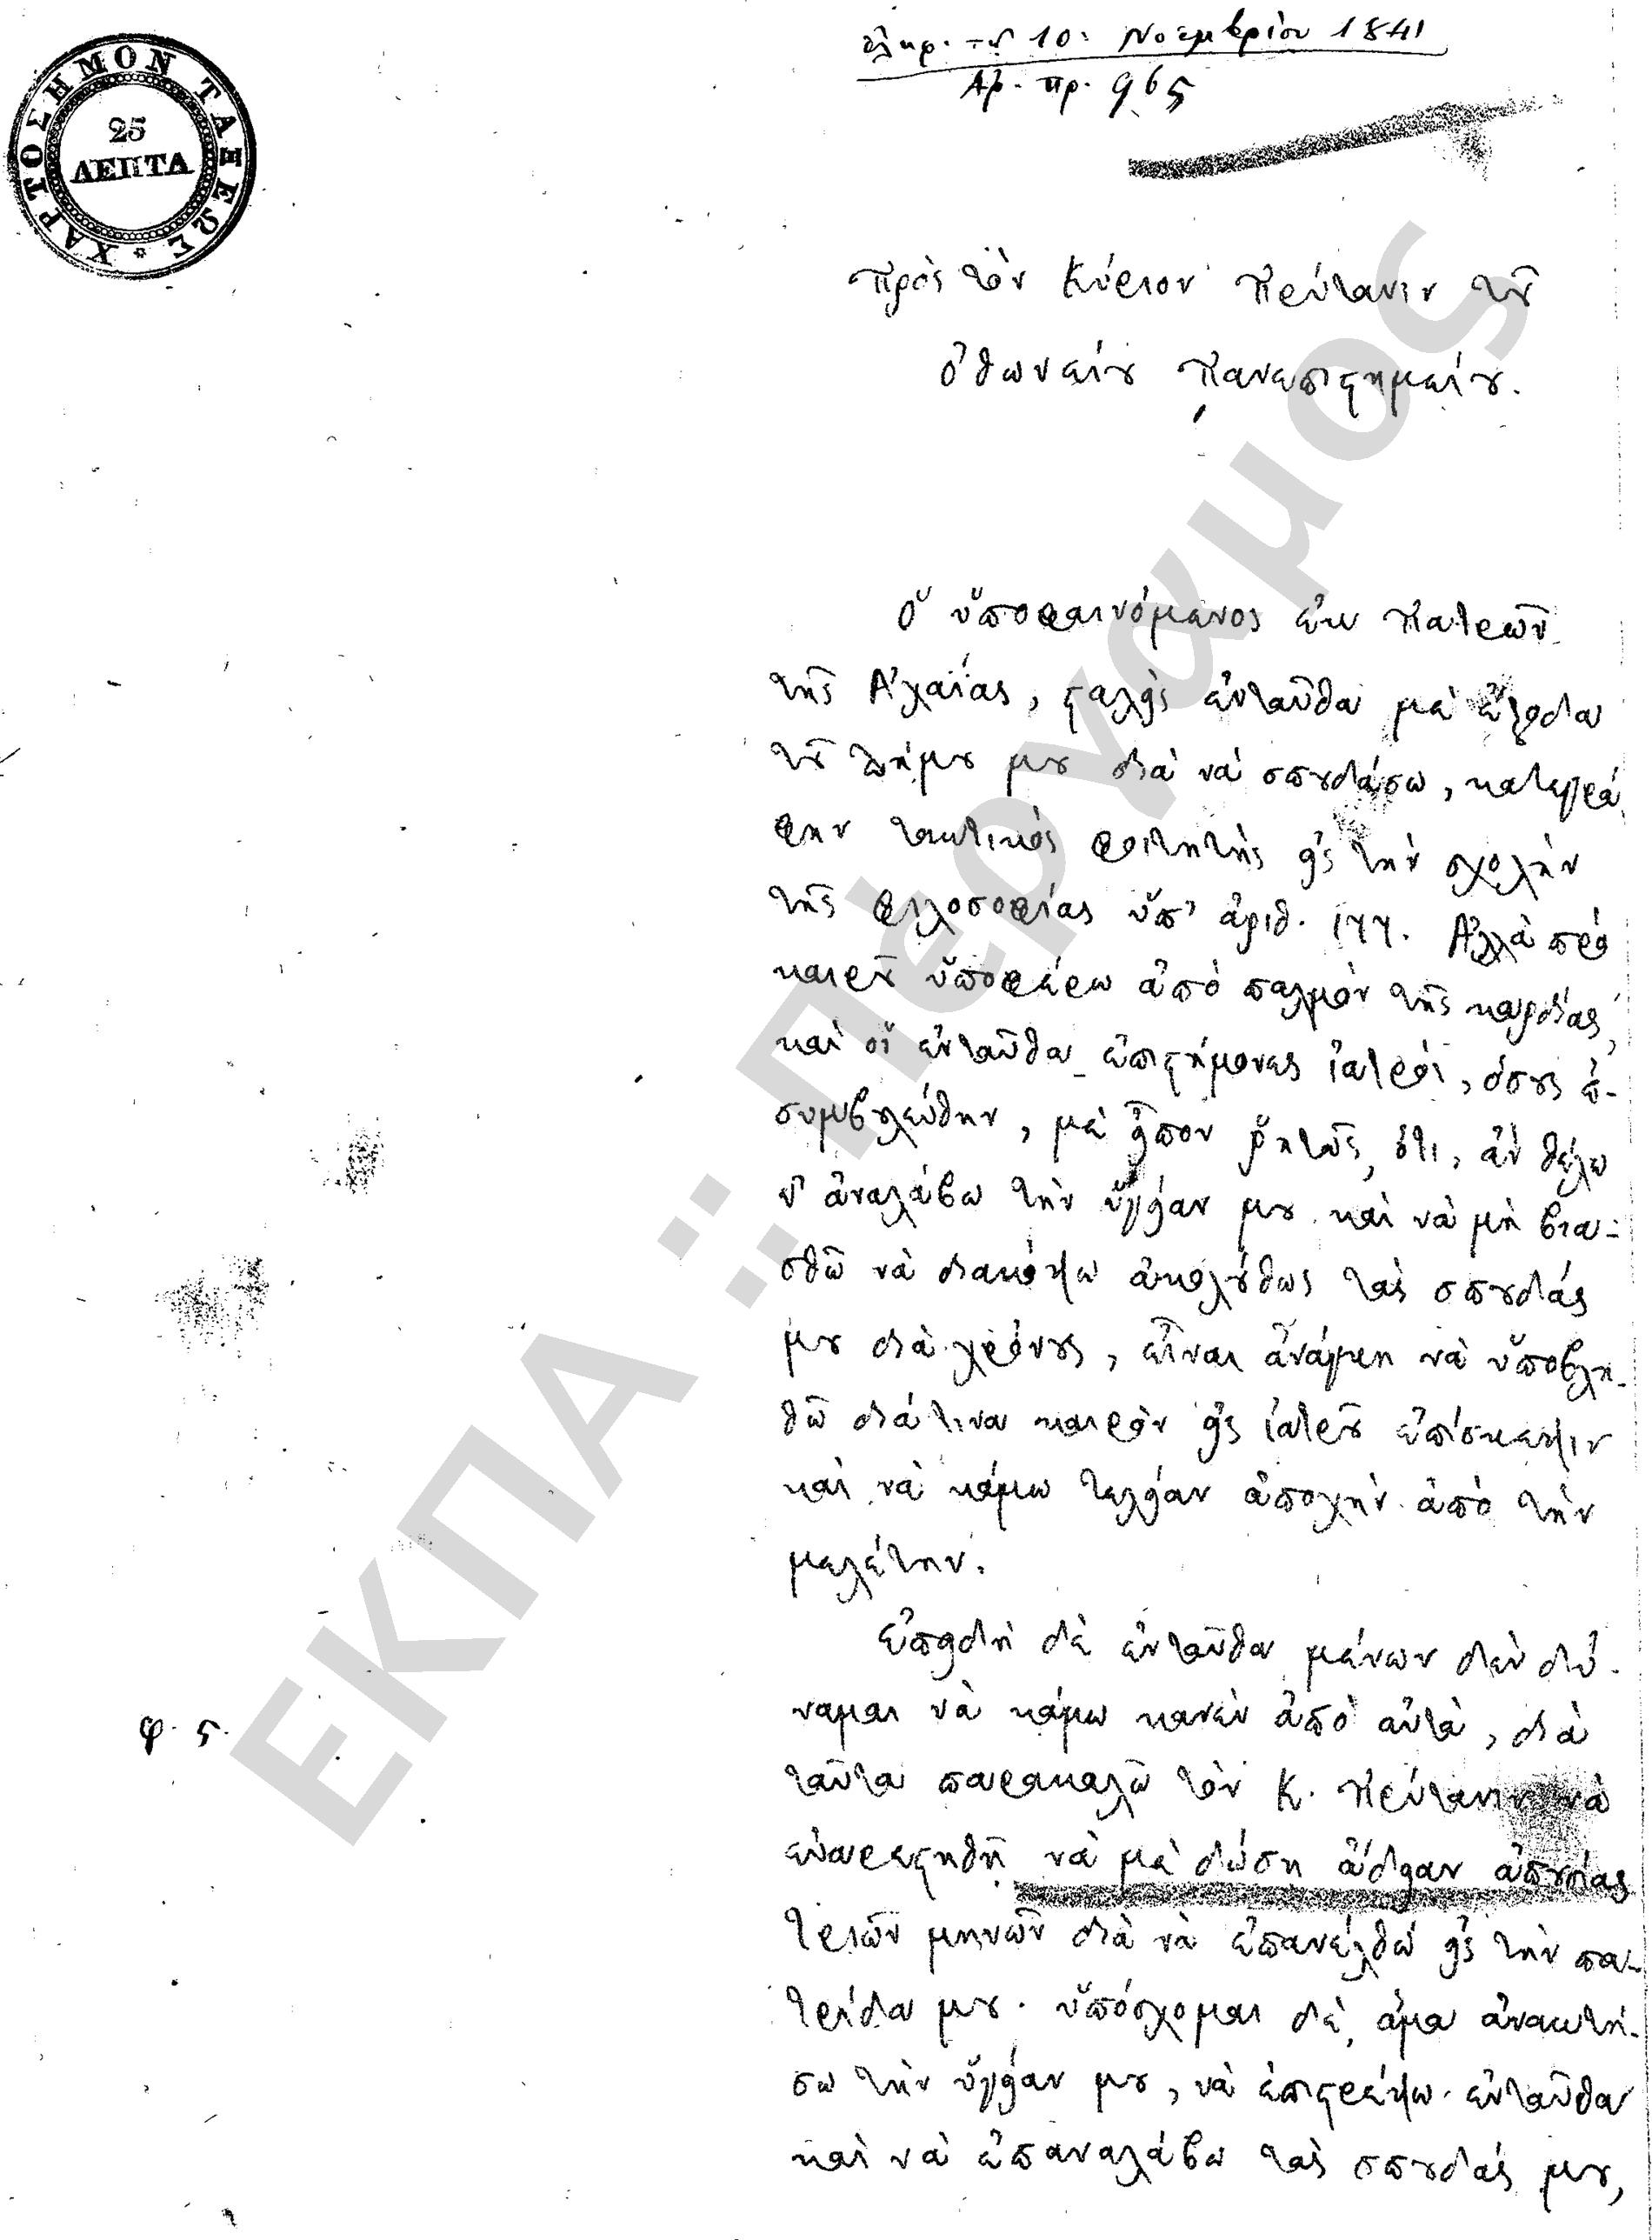 ἐλήφ. τῇ 10: Νοεμβρίου 1841
Ἀρ. πρ. 965
ΧΑΡΤΟΣΗΜΟΝ ΤΑΞΕΩΣ
25
ΛΕΠΤΑ
Πρὸς τὸν Κύριον Πρύτανιν τοῦ
Ὀθωνείου Πανεπιστημείου.
Ὁ ὑποφαινόμενος ἐκ Πατρῶν
τῆς Ἀχαΐας, σταλεὶς ἐνταῦθα μὲ ἔξοδα
τοῦ Δήμου μου διὰ νὰ σπουδάσω, κατεγρά
φην τακτικὸς φοιτητὴς εἰς τὴν σχολὴν
τῆς φιλοσοφίας ὑπ' ἀριθ. 177. Ἀλλὰ πρὸ
καιροῦ ὑποφέρω ἀπὸ παλμὸν τῆς καρδίας,
καὶ οἱ ἐνταῦθα ἐπιστήμονες ἰατροί, ὅσους ἐ-
συμβουλεύθην, μὲ εἶπον ῥητῶς, ὅτι, ἂν θέλω
ν' ἀναλάβω τὴν ὑγείαν μου καὶ νὰ μὴ βια-
σθῶ νὰ διακόψω ἀκολούθως τὰς σπουδάς
μου διὰ χρόνους, εἶναι ἀνάγκη νὰ ὑποβλη-
θῶ διά τινα καιρὸν εἰς ἰατροῦ ἐπίσκεψιν
καὶ νὰ κάμω τελείαν ἀποχὴν ἀπὸ τὴν
μελέτην.
Ἐπειδὴ δὲ ἐνταῦθα μένων δὲν δύ-
ναμαι νὰ κάμω κανὲν ἀπὸ αὐτὰ, διὰ
ταῦτα παρακαλῶ τὸν Κ. Πρύτανιν νὰ
εὐαρεστηθῇ νὰ μὲ δώσῃ ἄδειαν ἀπουσίας
τριῶν μηνῶν διὰ νὰ ἐπανέλθω εἰς τὴν πα-
τρίδα μου· ὑπόσχομαι δὲ, ἅμα ἀνακτή-
σω τὴν ὑγείαν μου, νὰ ἐπιστρέψω ἐνταῦθα
καὶ νὰ ἐπαναλάβω τὰς σπουδάς μου,
φ. 5.
ΕΚΠΑ :: Πέργαμος